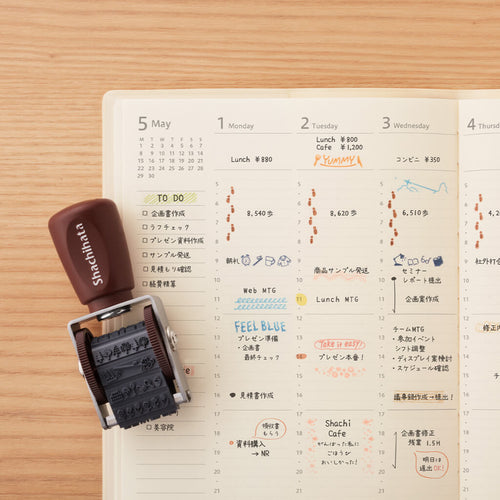 5 May
M T W T F S S
1
2 3 4 5 6 7 8
9 10 11 12 13 14 15
16 17 18 19 20 21 22
23 24 25 26 27 28 29
30 31
TO DO
企画書作成
ラフチェック
プレゼン資料作成
サンプル発送
見積もり確認
経費精算
美容院
Shachihata
1 Monday
Lunch ¥880
8,540歩
朝礼
Web MTG
FEEL BLUE
プレゼン準備
・企画書
最終チェック
見積書作成
領収書
もらう
資料購入
→ NR
2 Tuesday
Lunch ¥800
Cafe ¥1,200
Yummy
8,620歩
商品サンプル発送
Lunch MTG
Take it easy!
プレゼン本番!
Shachi
Cafe
がんばった私に
ごほうび
おいしかった!
3 Wednesday
コンビニ ¥350
6,510歩
セミナー
レポート提出
企画書作成
チームMTG
・参加イベント
シフト調整
・ディスプレイ案検討
・スケジュール確認
議事録作成→提出!
企画書修正
残業 1.5H
明日は
遅出OK!
4 Thursd
社外打合
修正内